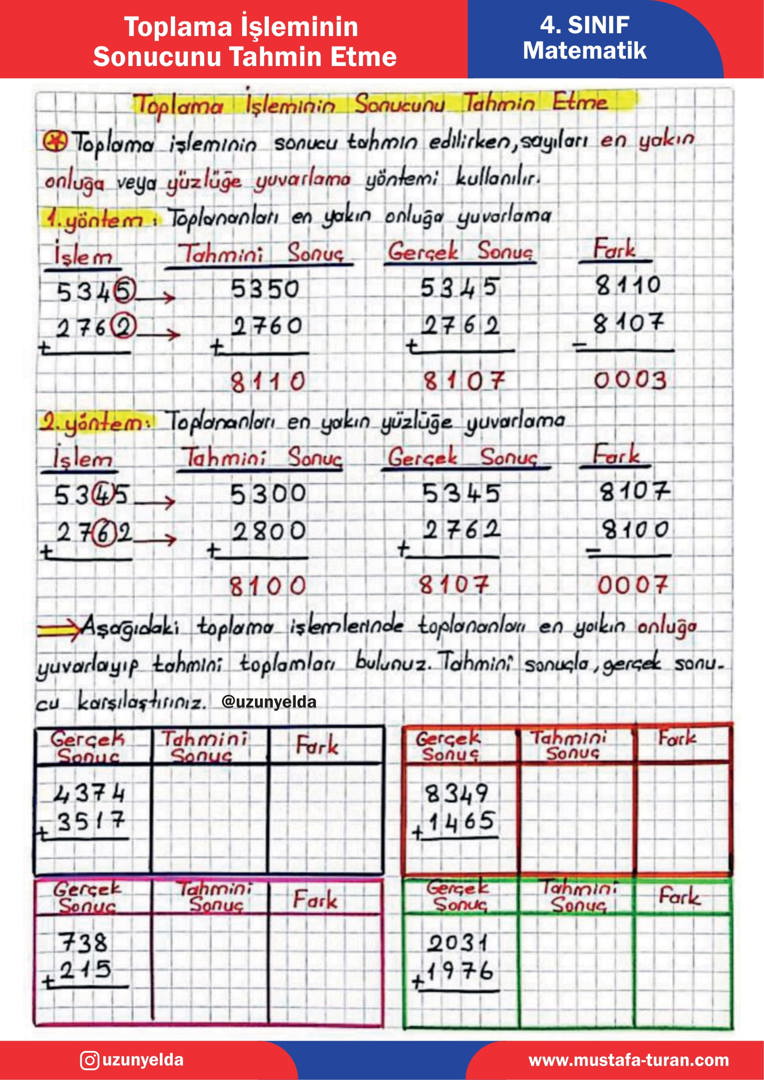 Toplama İşleminin
Sonucunu Tahmin Etme
4. SINIF
Matematik
Toplama İşleminin Sonucunu Tahmin Etme
Toplama işleminin sonucu tahmin edilirken, sayıları en yakın
onluğa veya yüzlüğe yuvarlama yöntemi kullanılır.
1. yöntem: Toplananları en yakın onluğa yuvarlama
İşlem Tahmini Sonuç Gerçek Sonuç Fark
5345 → 5350 5345 8110
+ 2762 → + 2760 + 2762 - 8107
8110 8107 0003
2. yöntem: Toplananları en yakın yüzlüğe yuvarlama
İşlem Tahmini Sonuç Gerçek Sonuç Fark
5345 → 5300 5345 8107
+ 2762 → + 2800 + 2762 - 8100
8100 8107 0007
Aşağıdaki toplama işlemlerinde toplananları en yakın onluğa
yuvarlayıp tahmini toplamları bulunuz. Tahmini sonuçla, gerçek sonu-
cu karşılaştırınız. @uzunyelda
Gerçek Sonuç Tahmini Sonuç Fark
4374
+ 3517
Gerçek Sonuç Tahmini Sonuç Fark
8349
+ 1465
Gerçek Sonuç Tahmini Sonuç Fark
738
+ 215
Gerçek Sonuç Tahmini Sonuç Fark
2031
+ 1976
uzunyelda
www.mustafa-turan.com